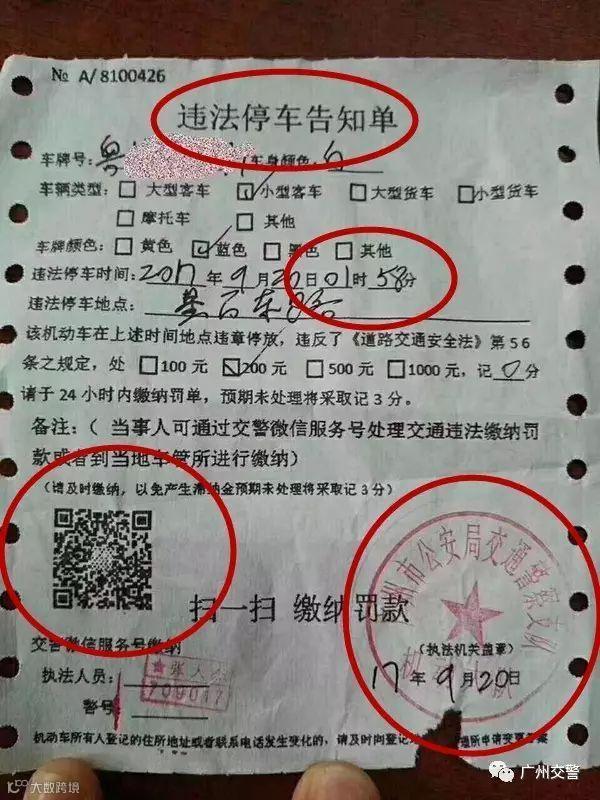 № A/8100426
违法停车告知单
车牌号: 粤 车身颜色: 白
车辆类型: 大型客车 小型客车 大型货车 小型货车
摩托车 其他
车牌颜色: 黄色 蓝色 黑色 其他
违法停车时间: 2017 年 9 月 20 日 01 时 58 分
违法停车地点:
该机动车在上述时间地点违章停放，违反了《道路交通安全法》第 56
条之规定，处 100 元 200 元 500 元 1000 元，记 0 分
请于 24 小时内缴纳罚单，预期未处理将采取记 3 分。
备注:（ 当事人可通过交警微信服务号处理交通违法缴纳罚
款或者到当地车管所进行缴纳）
(请及时缴纳，以免产生滞纳金预期未处理将采取记 3 分)
州市公安局交通警察支队
扫一扫 缴纳罚款
交警微信服务号缴纳
(执法机关盖章)
执法人员:
17 年 9 月 20 日
警号:
机动车所有人登记的住所地址或者联系电话发生变化的，请及时向登记
所申请变更备案
广州交警
大数跨境